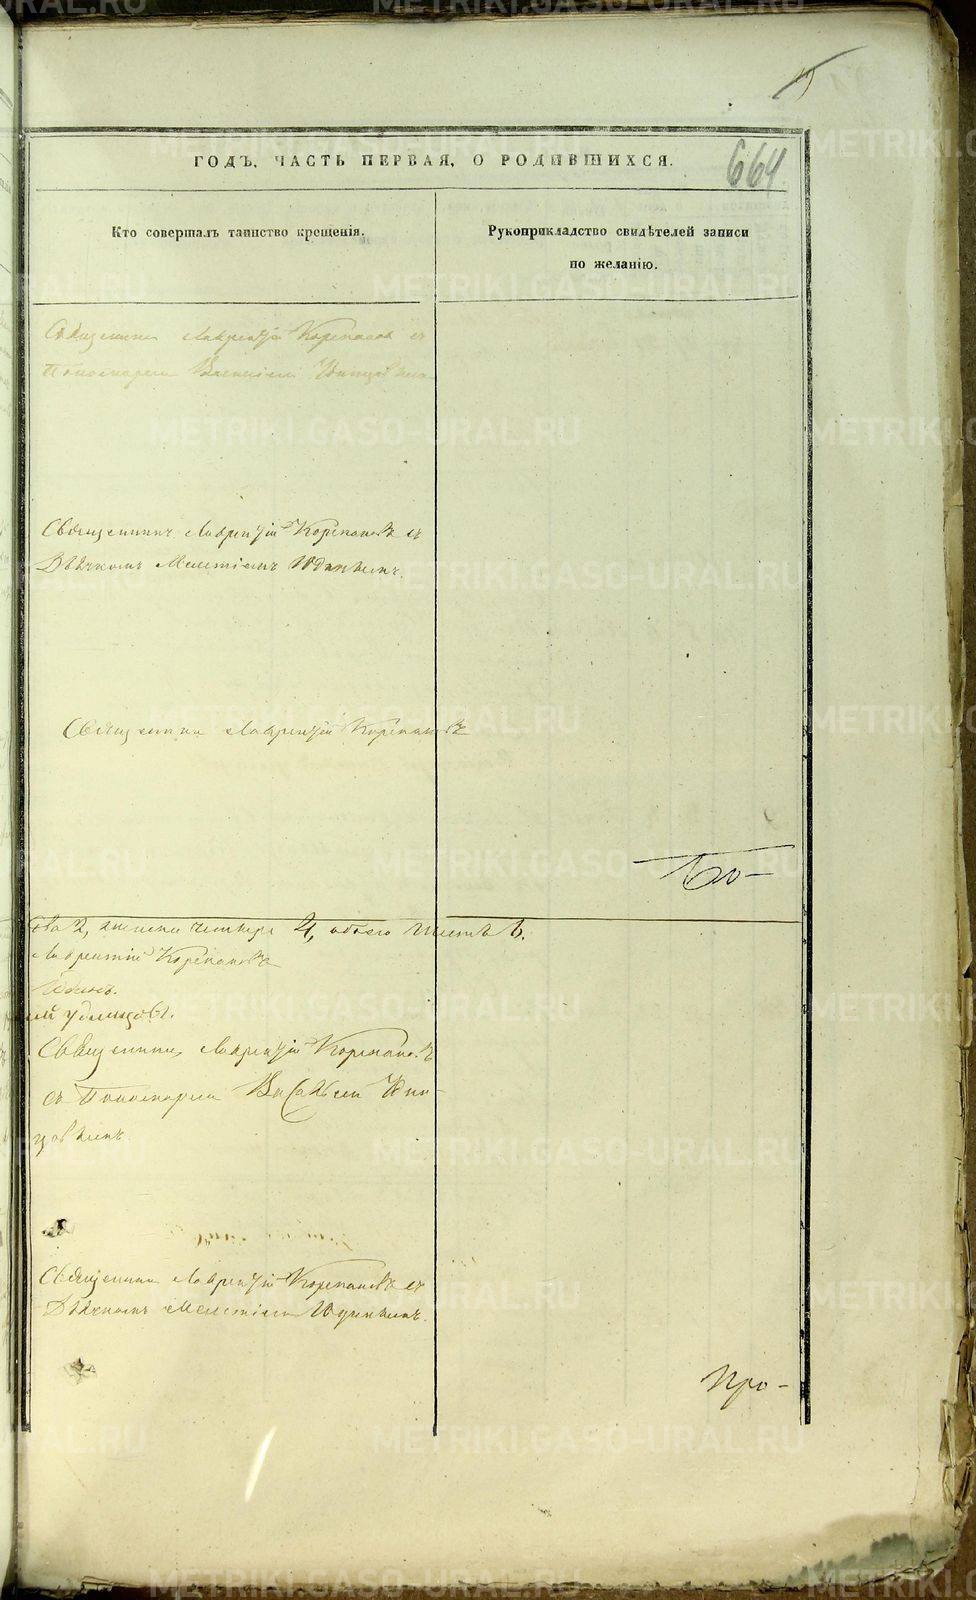 15
ГОДЪ. ЧАСТЬ ПЕРВАЯ, О РОДИВШИХСЯ.
664
Кто совершалъ таинство крещенія.
Рукоприкладство свидѣтелей записи
по желанію.
Священникъ Лаврентій Корепановъ съ
Пономаремъ
Священникъ Лаврентій Корепановъ съ
Дьячкомъ Мелетіемъ Юдинымъ.
Священникъ Лаврентій Корепановъ
Бо-
ова 2, женска четыре 4, обоего шесть 6.
Лаврентій Корепановъ
Юдинъ.
Священникъ Лаврентій Корепановъ
съ Пономаремъ Васильемъ
цовымъ.
Священникъ Лаврентій Корепановъ съ
Дьячкомъ Мелетіемъ Юдинымъ.
Про-
METRIKI.GASO-URAL.RU